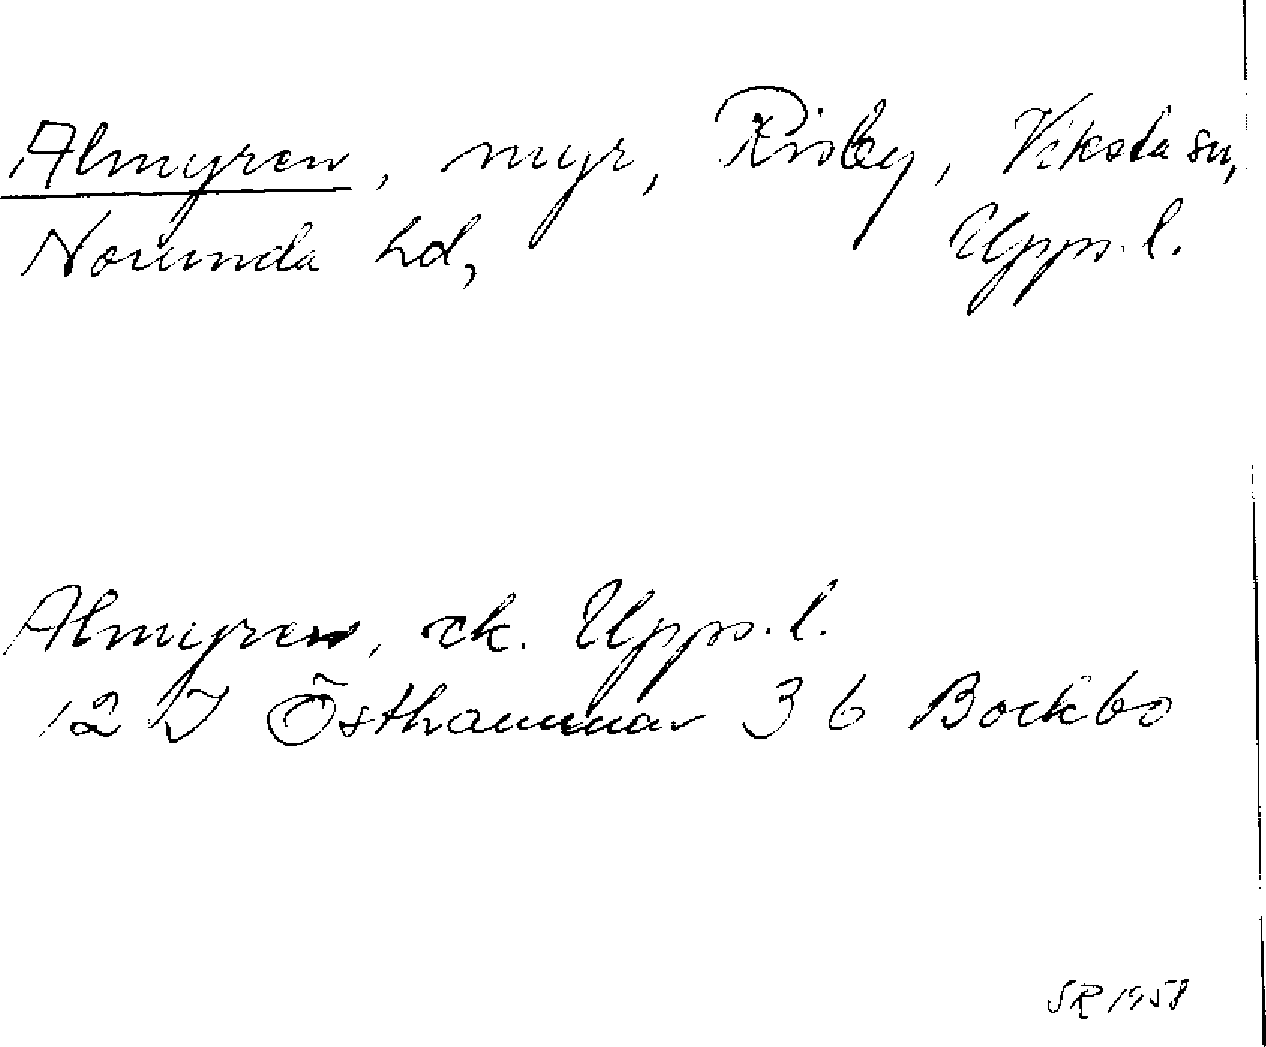 Almyren, myr, Risby, Viksta sn,
Norunda hd, Upps. l.
Almyren, ek. Upps. l.
12 I Östhammar 3 b Bockbo
SR 1958